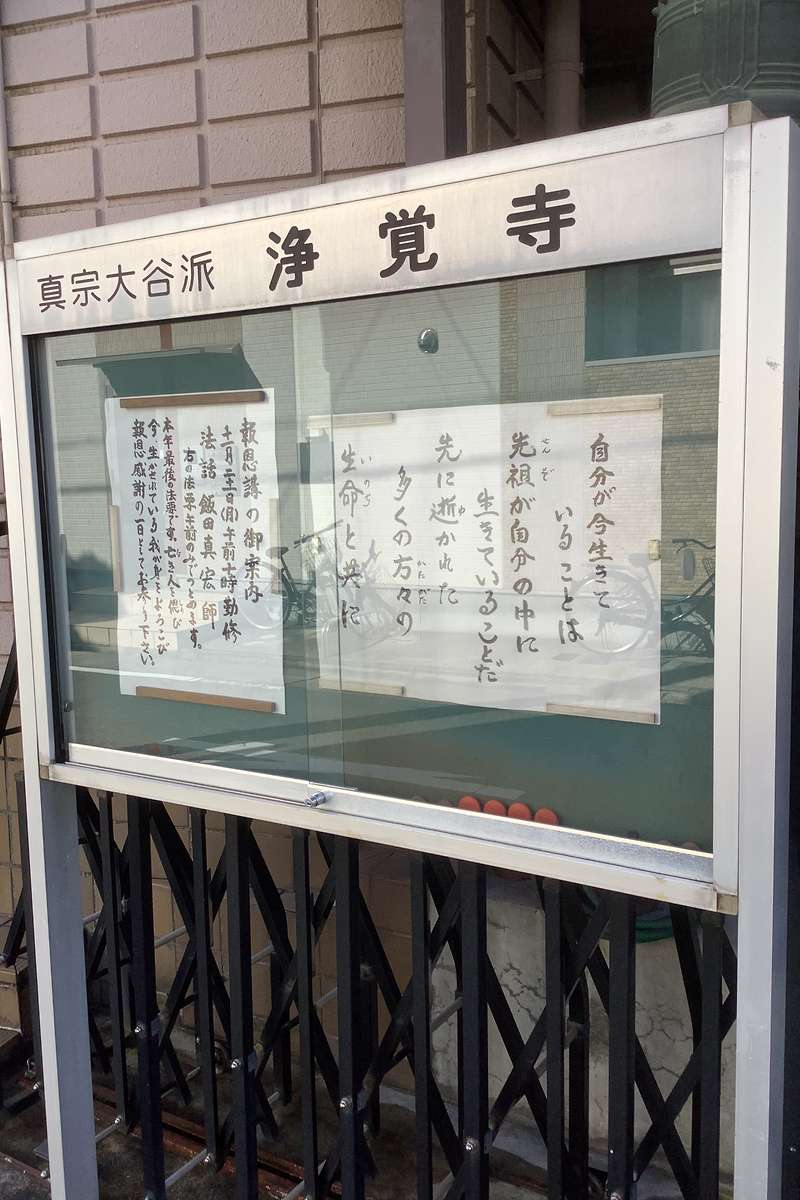 真宗大谷派 浄覚寺
自分が今生きて
いることは
先祖が自分の中に
せんぞ
生きていることだ
先に逝かれた
ゆ
多くの方々の
かたがた
生命と共に
いのち
報恩講の御案内
午前十時勤修
法話 飯田真宏師
右の法要午前のみでつとめます。
本年最後の法要です。亡き人を偲び
今、生かされている我が身をよろこび
報恩感謝の一日としてお参り下さい。